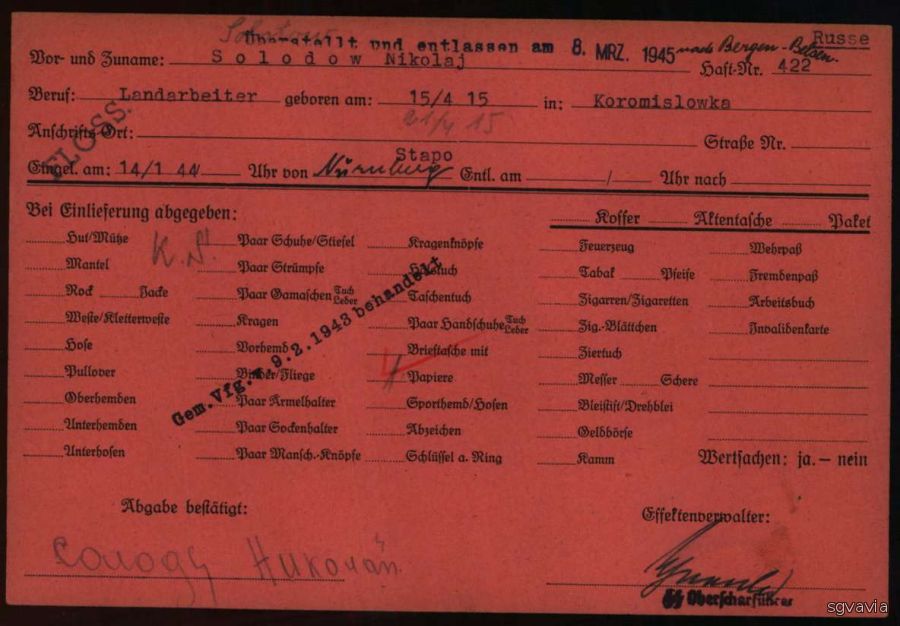 Russe
Überstellt und entlassen am 8. MRZ. 1945 nach Bergen-Belsen.
Vor- und Zuname: Solodow Nikolaj Haft-Nr. 422
Beruf: Landarbeiter geboren am: 15/4 15 in: Koromislowka
21/4 15
FLOSS.
Anschrifts-Ort: Straße Nr.
Stapo
Eingel. am: 14/1 44 Uhr von Nürnberg Entl. am / Uhr nach
Bei Einlieferung abgegeben: Koffer Aktentasche Paket
Hut/Mütze K.N. Paar Schuhe/Stiefel Kragenknöpfe Feuerzeug Wehrpaß
Mantel Paar Strümpfe Halstuch Tabak Pfeife Fremdenpaß
Rock Jacke Paar Gamaschen Tuch Leder Taschentuch Zigarren/Zigaretten Arbeitsbuch
Weste/Kletterweste Kragen Paar Handschuhe Tuch Leder Zig.-Blättchen Invalidenkarte
Hose Vorhemd Brieftasche mit Ziertuch
Pullover Binder/Fliege Papiere Messer Schere
Gem. Vfg. v. 9.2.1943 behandelt
Oberhemden Paar Ärmelhalter Sporthemd/Hosen Bleistift/Drehblei
Unterhemden Paar Sockenhalter Abzeichen Geldbörse
Unterhosen Paar Mansch.-Knöpfe Schlüssel a. Ring Kamm Wertsachen: ja. – nein
Abgabe bestätigt: Effektenverwalter:
Солоду Николай
SS Oberscharführer
sgvavia